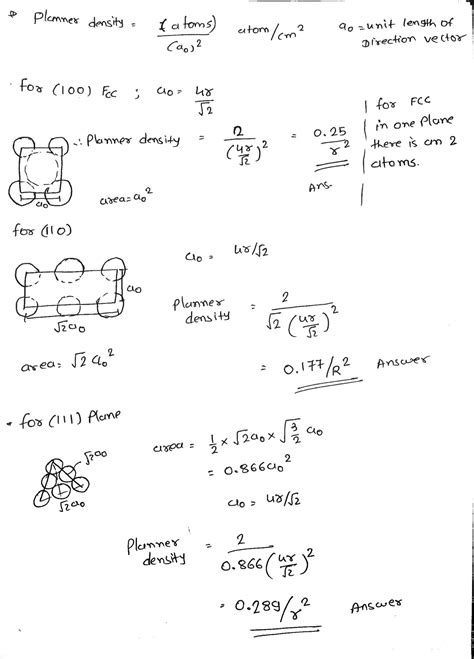 Planner density = (atoms) / (a₀)² atom/cm² a₀ = unit length of Direction vector
for (100) FCC ; a₀ = 4r/√2
∴ Planner density = 2/(4r/√2)² = 0.25/r²
Ans.
for FCC
in one Plane
there is an 2
atoms.
a₀
area = a₀²
for (110)
a₀ = 4r/√2
a₀
√2a₀
Planner density = 2/√2(4r/√2)²
area = √2 a₀²
= 0.177/R² Answer
• for (111) Plane
area = 1/2 × √2a₀ × √3/2 a₀
√2a₀
√2a₀
= 0.866a₀²
a₀ = 4r/√2
Planner density = 2/0.866(4r/√2)²
= 0.289/r² Answer